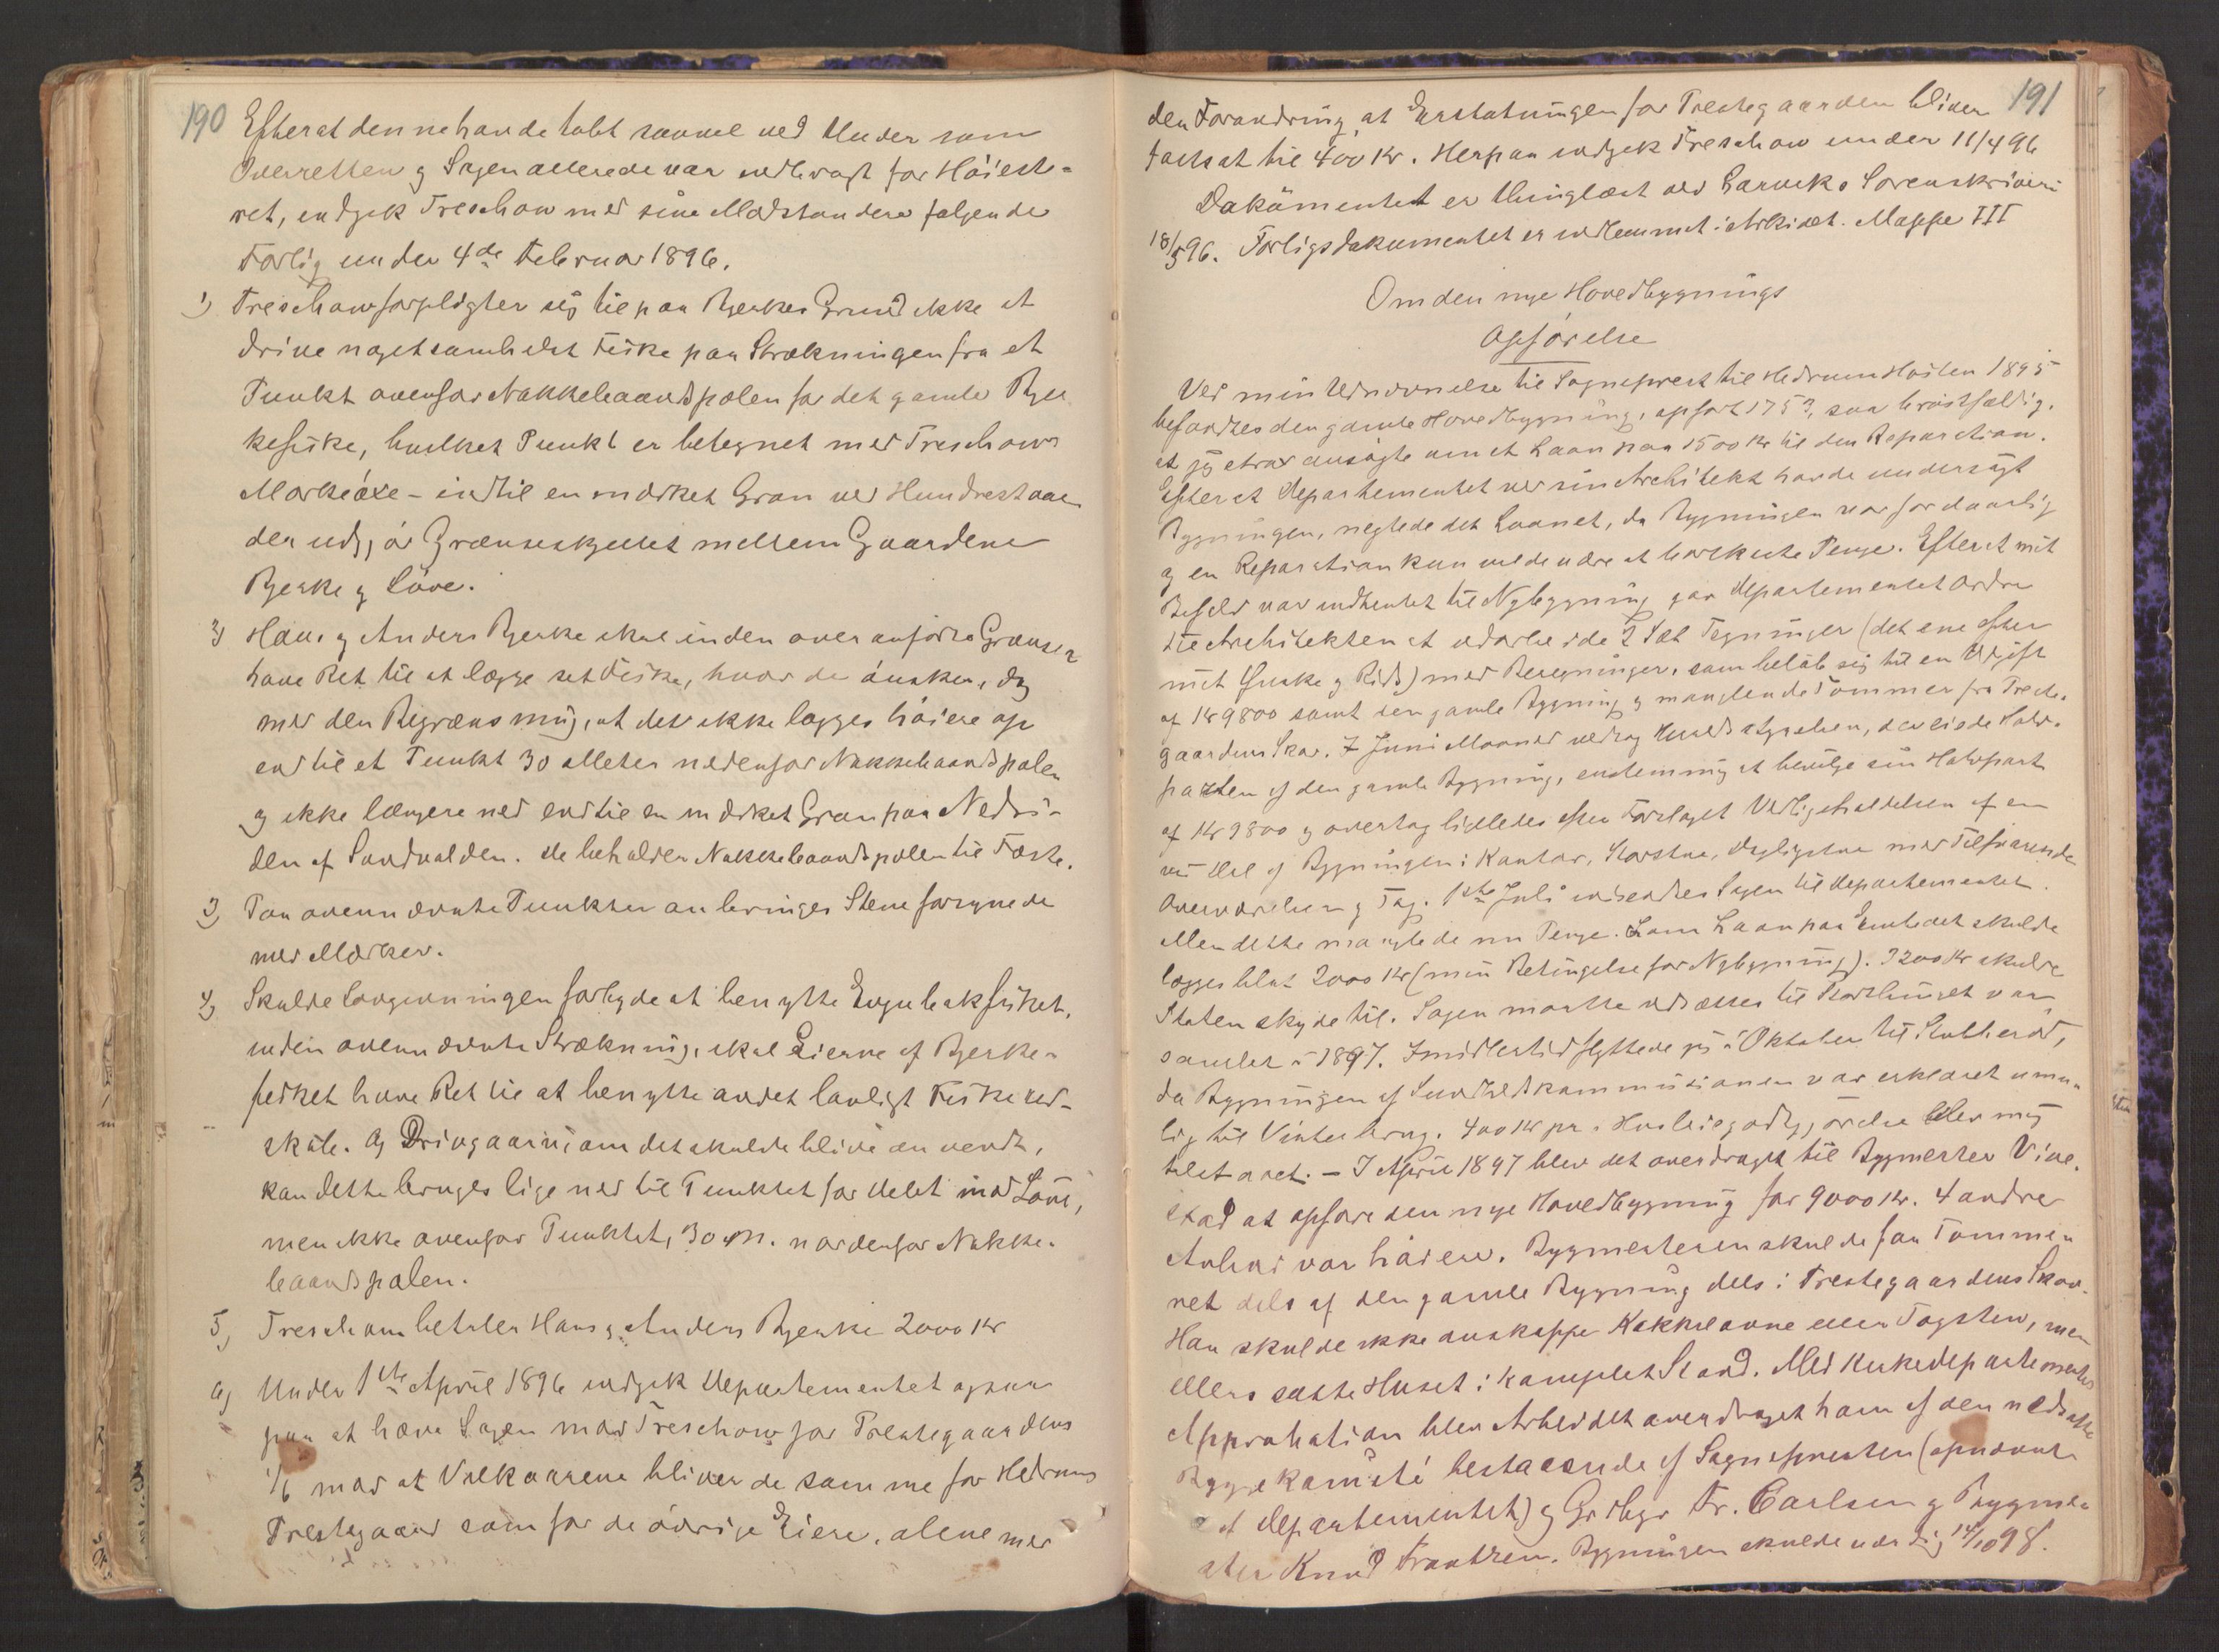 190
Efterat denne havde tabt saavel ved Under som
Overretten og Sagen allerede var indbragt for Höieste-
ret, indgik Treschow med sine Modstandere følgende
Forlig under 4de Februar 1896.
1) Treschow forpligter sig til paa Bjerkes Grund ikke at
drive noget somhelst Fiske paa Strækningen fra et
Punkt ovenfor Nakkebaandspælen for det gamle Bjer
kefiske, hvilket Punkt er betegnet med Treschows
Markeöxe - indtil en mærket Gran ved
der udgjör Grændseskjellet mellem Gaardene
Bjerke og Löve.
2) Hans og Anders Bjerke skal inden ovenanförte Grænser
have Ret til at lægge sit Fiske, hvor de önsker, dog
med den Begrænsning, at det ikke lægges höiere op
end til et Punkt 30 Meter nedenfor Nakkebaandspælen
og ikke længere ned end til en mærket Gran paa Nedsi-
den af Sandvolden. De beholder Nakkebaandspælen til Fæste.
3) Paa ovennævnte Punkter anbringes Stene forsynede
med Mærker.
4) Skulde Lovgivningen forbyde at benytte fisket,
inden ovennævnte Strækning, skal Eierne af Bjerke-
fisket have Ret til at benytte andet lovligt Fiskered-
skab. Og Drivgarn, om det skulde blive anvendt,
kan dette bruges lige ned til Punktet for Delet mod Löve,
men ikke ovenfor Punktet, 30 M. nordenfor Nakke-
baandspælen.
5) Treschow betaler Hans og Anders Bjerke 2000 Kr
6) Under 1ste April 1896 indgik Departementet ogsaa
paa at hæve Sagen mod Treschow for Prestegaardens
1/6 mod at Vilkaarene bliver de samme for Hedrums
Prestegaard som for de övrige Eiere, alene med
191
den Forandring, at Erstatningen for Prestegaarden bliver
fastsat til 400 Kr. Herpaa indgik Treschow under 11/4 96
Dokumentet er thinglæst ved Larviks Sorenskriveri
18/5 96. Forligsdokumentet er indlemmet i Arkivet. Mappe III
Om den nye Hovedbygnings
Opförelse
Ved min Udnævnelse til Sogneprest til Hedrum Hösten 1895
befandtes den gamle Hovedbygning, opfört 1753, saa bröstfældig,
at jeg strax ansögte om et Laan paa 1500 Kr til den Reparation.
Efterat Departementet ved sin Architekt havde undersögt
Bygningen, negtede det Laanet, da Bygningen var for daarlig
og en Reparation kun vilde være at bortkaste Penge. Efterat mit
var indhentet til Nybygning gav Departementet Ordre
til Architekten at udarbeide 2 Sæt Tegninger (det ene efter
mit Ønske og Rids) med Beregninger, som belöb sig til en Udgift
af Kr 9800 samt den gamle Bygning og manglende Tömmer fra Preste-
gaardens Skov. I Juni Maaned vedtog Herredsstyrelsen, der eiede Halv-
parten af den gamle Bygning, enstemmig at bevilge sin Halvpart
af Kr 9800 og overtog ligeledes efter Forslaget Vedligeholdelsen af en
vis Del af Bygningen: Kontor, Storstue, Dagligstue med Tilsvarende
Overværelser og Tag. 1ste Juli indsendtes Sagen til Departementet.
Men dette manglede nu Penge. Som Laan paa Embedet skulde
lægges blot 2000 Kr (min Betingelse for Nybygning). 3200 Kr skulde
Staten skyde til. Sagen maatte udsættes til Storthinget var
samlet i 1897. Imidlertid flyttede jeg i Oktober til
da Bygningen af Sundhedskommissionen var erklæret umu-
lig til Vinterbrug. 400 Kr pr. i Husleiegodtgjörelse blev mig
tilstaaet. - I April 1897 blev det overdraget til Bygmester Vive-
stad at opföre den nye Hovedbygning for 9000 Kr. 4 andre
Anbud var höiere. Bygmesteren skulde faa Tömme-
ret dels af den gamle Bygning dels i Prestegaardens Skov.
Han skulde ikke anskaffe Kakkelovne eller Tagsten, men
ellers sætte Huset i komplet Stand. Med Kirkedepartementets
Approbation blev Arbeidet overdraget ham af den nedsatte
Byggekomité bestaaende af Sognepresten (opnævnt
af Departementet) og Grdbgr Fr. Carlsen og Bygme-
ster Knud Frantzen. Bygningen skulde være færdig 14/10 98.